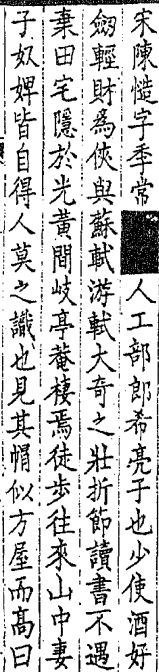 宋陳慥字季常人工部郎希亮子也少使酒好
劒輕財為俠與蘇軾游軾大奇之壯折節讀書不遇
棄田宅隱於光黄間岐亭菴棲焉徒步往來山中妻
子奴婢皆自得人莫之識也見其㡌似方屋而高曰